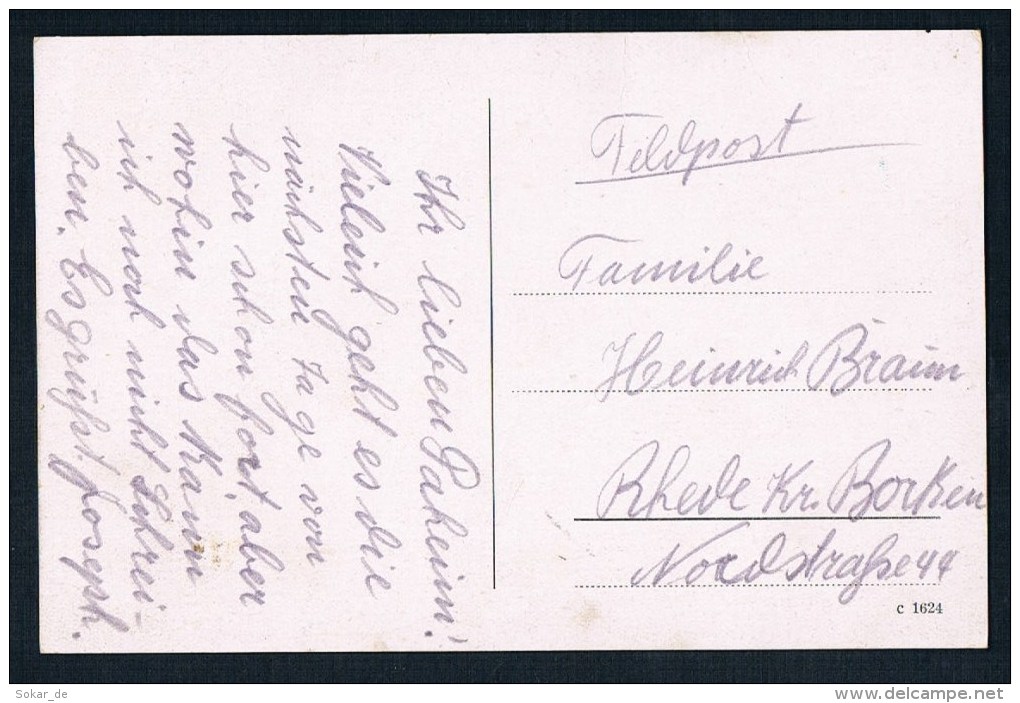 Ihr lieben Daheim!
Vieleich geht es die
nächsten Tage von
hier schon fort, aber
wohin das kann
ich noch nicht Schrei-
ben. Es grüßt Joseph.
Feldpost
Familie
Heinrich Braun
Rhede Kr. Borken
Nordstraße 44
c 1624
Sokar_de
www.delcampe.net